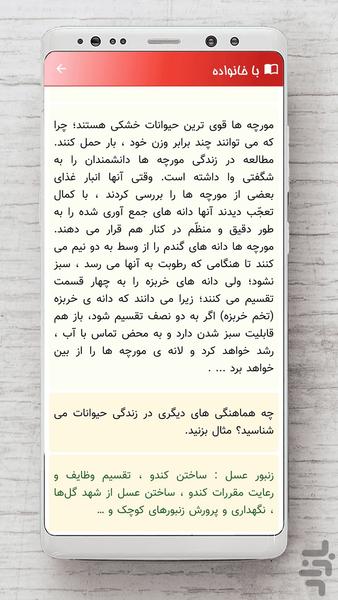 با خانواده
مورچه ها قوی ترین حیوانات خشکی هستند؛ چرا
که می توانند چند برابر وزن خود ، بار حمل کنند.
مطالعه در زندگی مورچه ها دانشمندان را به
شگفتی وا داشته است. وقتی آنها انبار غذای
بعضی از مورچه ها را بررسی کردند ، با کمال
تعجّب دیدند آنها دانه های جمع آوری شده را به
طور دقیق و منظّم در کنار هم قرار می دهند.
مورچه ها دانه های گندم را از وسط به دو نیم می
کنند تا هنگامی که رطوبت به آنها می رسد ، سبز
نشود؛ ولی دانه های خربزه را به چهار قسمت
تقسیم می کنند؛ زیرا می دانند که دانه ی خربزه
(تخم خربزه) اگر به دو نصف تقسیم شود، باز هم
قابلیت سبز شدن دارد و به محض تماس با آب ،
رشد خواهد کرد و لانه ی مورچه ها را از بین
خواهد برد ... .
چه هماهنگی های دیگری در زندگی حیوانات می
شناسید؟ مثال بزنید.
زنبور عسل : ساختن کندو ، تقسیم وظایف و
رعایت مقررات کندو ، ساختن عسل از شهد گل‌ها
، نگهداری و پرورش زنبورهای کوچک و ...
بازار